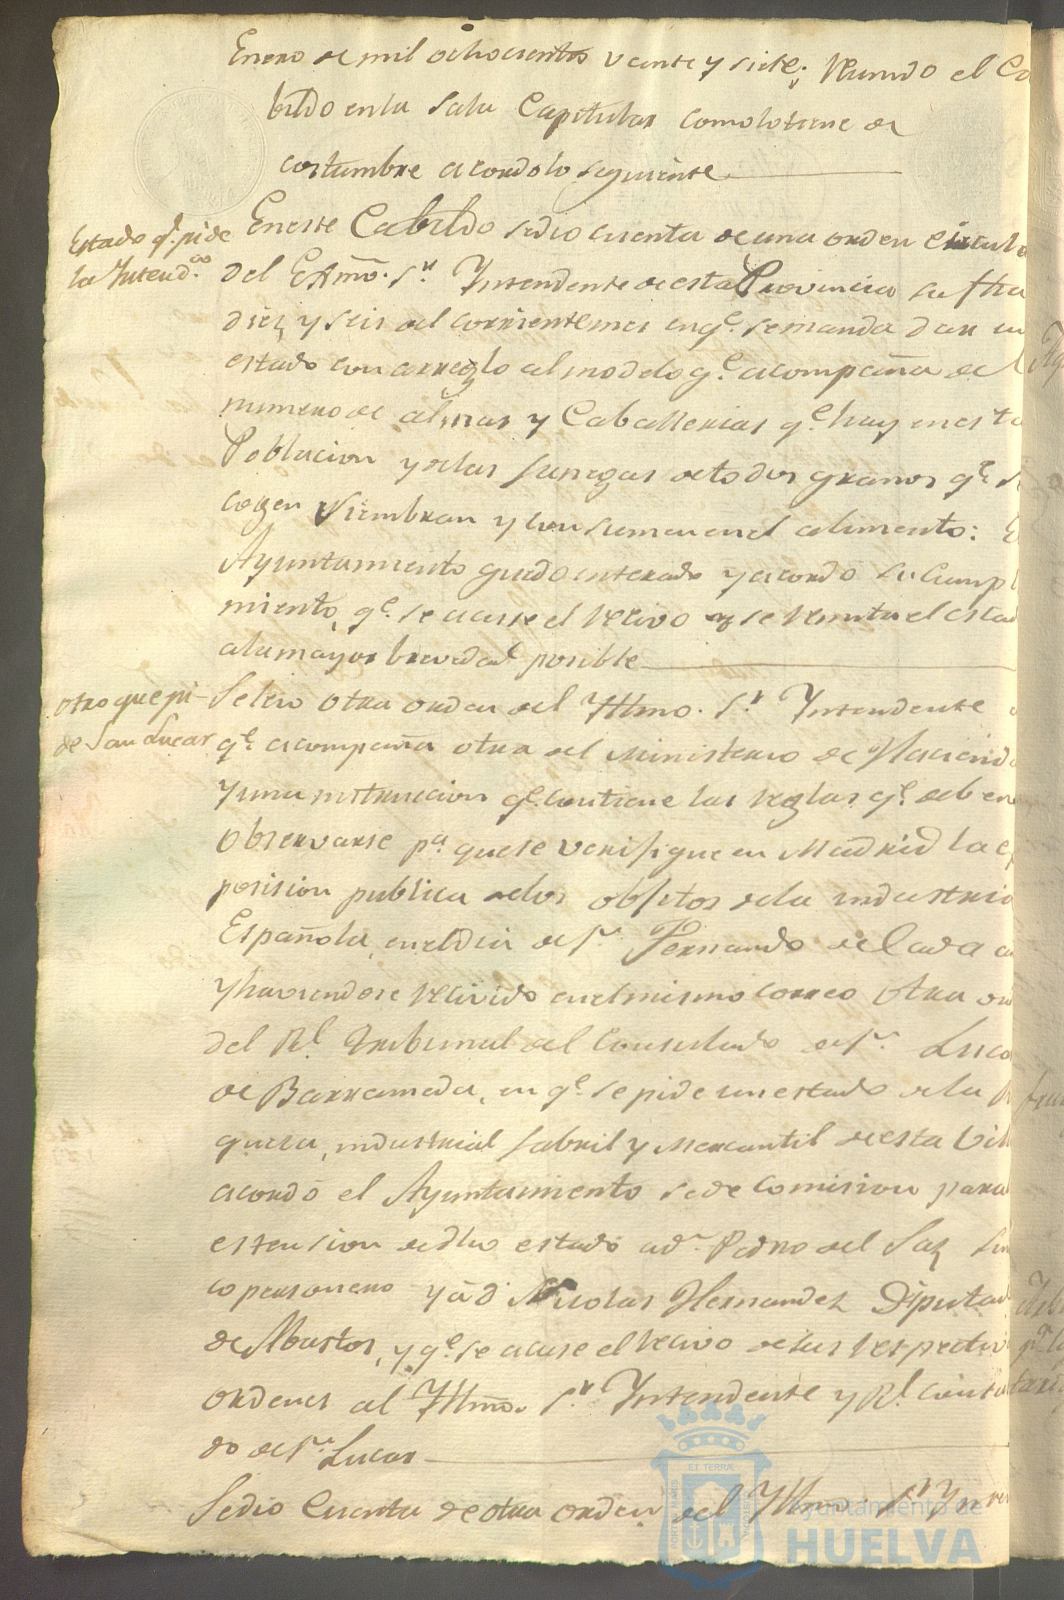 Enero de mil ochocientos veinte y siete; Reunido el Ca
bildo en la Sala Capitular como lo tiene de
costumbre acordo lo seguiente
Estado q.e pide
la Intend.ca
En este Cabildo se dio cuenta de una orden circula
del Exmo. S.r Yntendente de esta Provincia su fha
diez y seis del corriente mes en q.e se manda dar un
estado con arreglo al modelo q.e acompaña del
numero de almas y Caballerias q.e hay en esta
Poblacion y de las fanegas de todos granos q.e s
cogen siembran y consumen en el alimento: E
Ayuntamiento quedo enterado y acordó su Cumpl
miento, q.e se acuse el recivo y se remita el estad
a la mayor brevedad posible
otro que pi-
de San Lucar
Se leio otra orden del Yllmo. S.r Yntendente
q.e acompaña otra del Ministerio de Haciend
y una instruccion q.e contiene las reglas q.e deben
observarse p.a que se verifique en Madrid la e
posision publica de los objetos de la industria
Española, en el dia de S.n Fernando de Cada a
y haviendose recivido en el mismo correo otra or
del R.l Tribunal del Consulado de S.n Luca
de Barrameda, en q.e se pide un estado de la r
queza, industrial fabril y Mercantil de esta Vill
acordó el Ayuntamiento se de Comision para
estension de dho estado a d.n Pedro del Saz Sin
co personero y á d.n Nicolas Hernandez Diputad
de Abastos, y q.e se acuse el recivo de las respectiv
ordenes al Yllmo. S.r Yntendente y R.l Consula
do de S.n Lucar
Se dio Cuenta de otra orden del Yllmo. S.r Ynten
ET TERRÆ
Ayuntamiento de
HUELVA